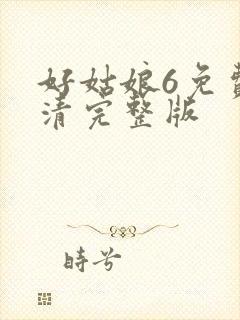 好姑娘6免費
清完整版
時兮